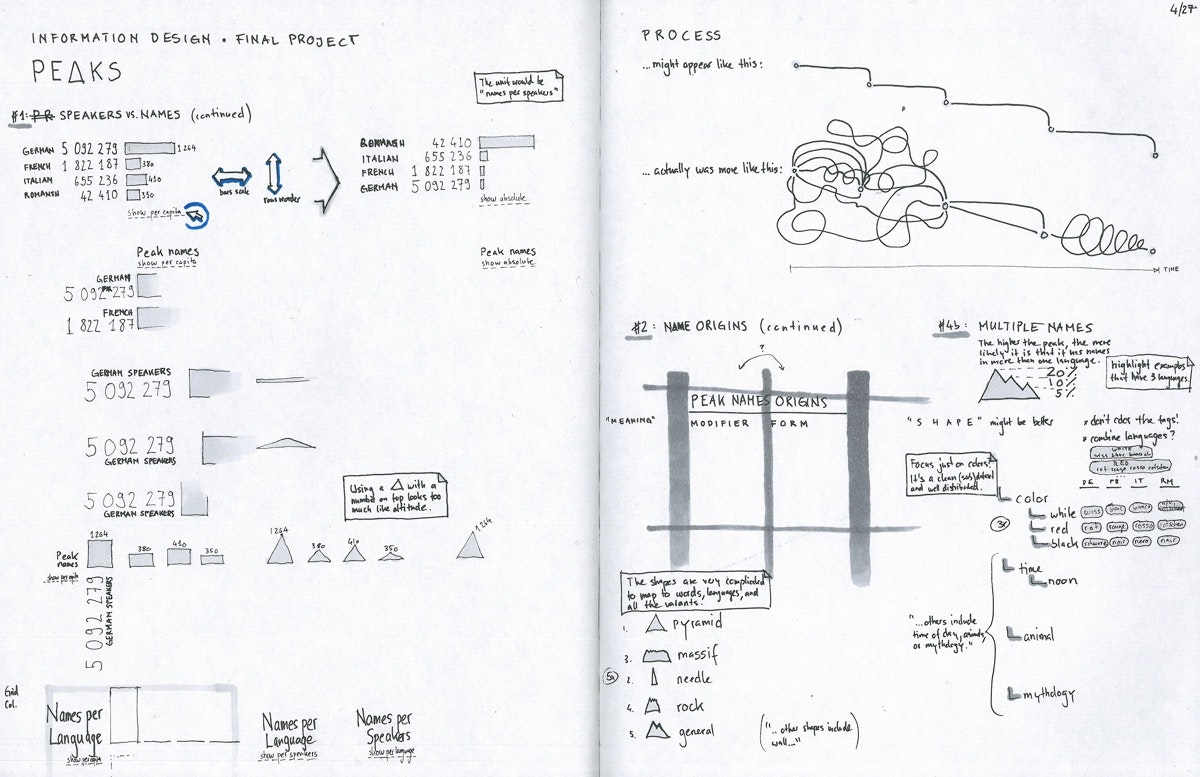 INFORMATION DESIGN • FINAL PROJECT
PEAKS
The unit would be
"names per speakers"
#1: PR SPEAKERS VS. NAMES (continued)
GERMAN 5 092 279 1264
FRENCH 1 822 187 380
ITALIAN 655 236 410
ROMANSH 42 410 350
show per capita
bars scale
rows reorder
ROMANSH 42 410
ITALIAN 655 236
FRENCH 1 822 187
GERMAN 5 092 279
show absolute
Peak names
show per capita
GERMAN
5 092 279
FRENCH
1 822 187
Peak names
show absolute
GERMAN SPEAKERS
5 092 279
5 092 279
GERMAN SPEAKERS
5 092 279
GERMAN SPEAKERS
Using a △ with a
number on top looks too
much like altitude.
Peak
names
show per capita
1264
380
410
350
1264
380
410
350
1264
5 092 279
GERMAN SPEAKERS
Grid
Col.
Names per
Language
show per capita
Names per
Language
show per speakers
Names per
Speakers
show per language
4/27
PROCESS
...might appear like this:
... actually was more like this:
TIME
#2: NAME ORIGINS (continued)
?
"MEANING"
PEAK NAMES ORIGINS
MODIFIER FORM
The shapes are very complicated
to map to words, languages, and
all the variants.
1. pyramid
3. massif
5x
2. needle
4. rock
5. general
("... other shapes include
wall...")
#4b: MULTIPLE NAMES
The higher the peak, the more
likely it is that it has names
in more than one language.
20%
10%
5%
highlight examples
that have 3 languages.
"SHAPE" might be better
* don't color the tags!
* combine languages?
WHITE
RED
rot rouge rosso cotschen
DE FR IT RM
Focus just on colors!
It's a clean (sub)dataset
and well distributed.
color
3x
white weiss
red rot rouge rosso cotschen
black schwarz noir nero nair
time
noon
"...others include
time of day, animals,
or mythology."
animal
mythology